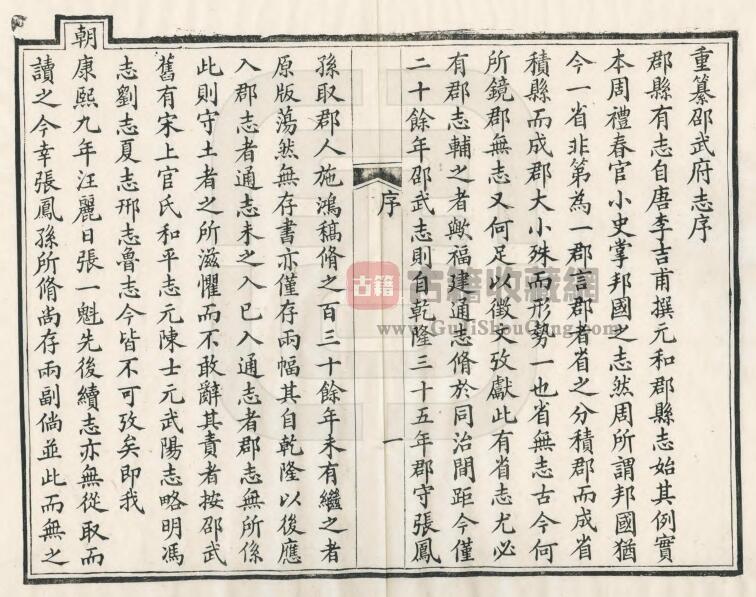 重纂邵武府志序
郡縣有志自唐李吉甫撰元和郡縣志始其例實
本周禮春官小史掌邦國之志然周所謂邦國猶
今一省非第為一郡言郡者省之分積郡而成省
積縣而成郡大小殊而形勢一也省無志古今何
所鏡郡無志又何足以徵文攷獻此有省志尤必
有郡志輔之者歟福建通志脩於同治間距今僅
二十餘年邵武志則自乾隆三十五年郡守張鳳
序
一
孫取郡人施鴻稿脩之百三十餘年未有繼之者
原版蕩然無存書亦僅存兩幅其自乾隆以後應
入郡志者通志未之入已入通志者郡志無所係
此則守土者之所滋懼而不敢辭其責者按邵武
舊有宋上官氏和平志元陳士元武陽志略明馮
志劉志夏志邢志魯志今皆不可攷矣即我
朝康熙九年汪麗日張一魁先後續志亦無從取而
讀之今幸張鳳孫所脩尚存兩副倘並此而無之
古籍
古籍收藏網
www.GuJiShouCang.com